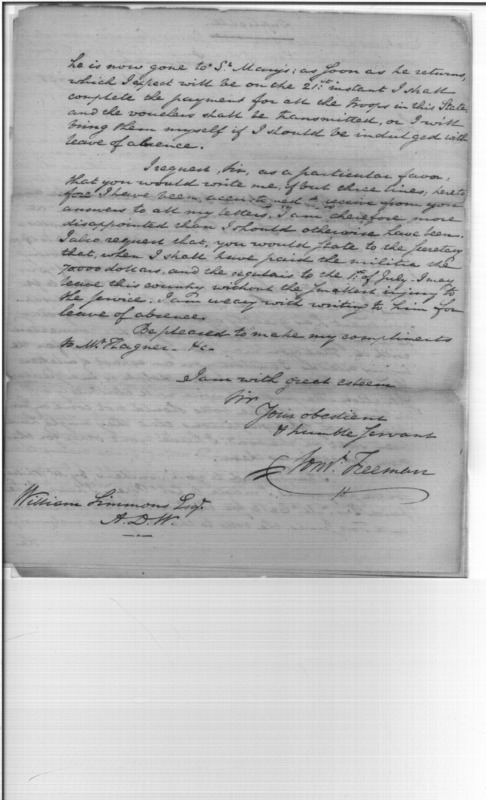 he is now gone to St. Marys; as soon as he returns,
which I expect will be on the 21st. instant I shall
complete the payment for all the troops in this State,
and the vouchers shall be transmitted, or I will
bring them myself if I should be indulged with
leave of absence.
I request, Sir, as a particular favor,
that you would write me, if but three lines, hereto
fore I have been accustomed to receive from you
answers to all my letters, I am therefore more
disappointed than I should otherwise have been.
I also request that, you would state to the Secretary
that, when I shall have paid the militia the
70000 dollars, and the regulars to the 1st. of July I may
leave this country without the smallest injury to
the service. I am weary with writing to him for
leave of absence.
Be pleased to make my compliments
to Mr. Hagner. &c.
I am with great esteem
Sir
Your obedient
& humble Servant
Const. Freeman
William Simmons Esqr.
A.D.W.